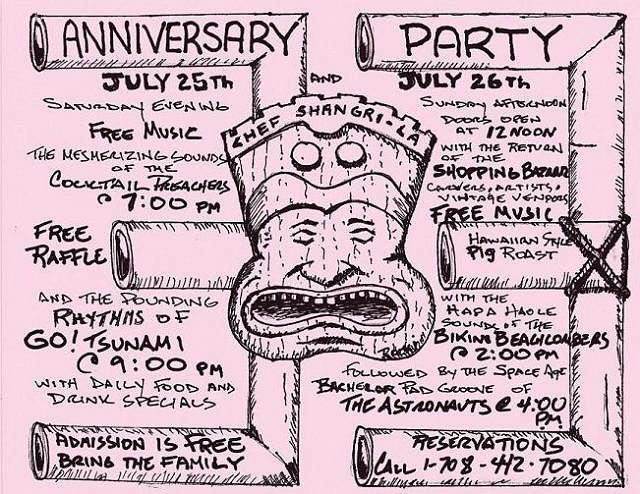 ANNIVERSARY PARTY
JULY 25TH
SATURDAY EVENING
FREE MUSIC
THE MESMERIZING SOUNDS
OF THE
COCKTAIL PREACHERS
@ 7:00 PM
FREE
RAFFLE
AND THE POUNDING
RHYTHMS OF
GO! TSUNAMI
@ 9:00 PM
WITH DAILY FOOD AND
DRINK SPECIALS
ADMISSION IS FREE
BRING THE FAMILY
AND
CHEF SHANGRI-LA
JULY 26TH
SUNDAY AFTERNOON
DOORS OPEN
AT 12 NOON
WITH THE RETURN
OF THE
SHOPPING BAZAAR
CARVERS, ARTISTS,
VINTAGE VENDORS
FREE MUSIC
HAWAIIAN STYLE
PIG ROAST
WITH THE
HAPA HAOLE
SOUNDS OF THE
BIKINI BEACHCOMBERS
@ 2:00 PM
FOLLOWED BY THE SPACE AGE
BACHELOR PAD GROOVE OF
THE ASTRONAUTS @ 4:00
PM
RESERVATIONS
CALL 1-708-442-7080